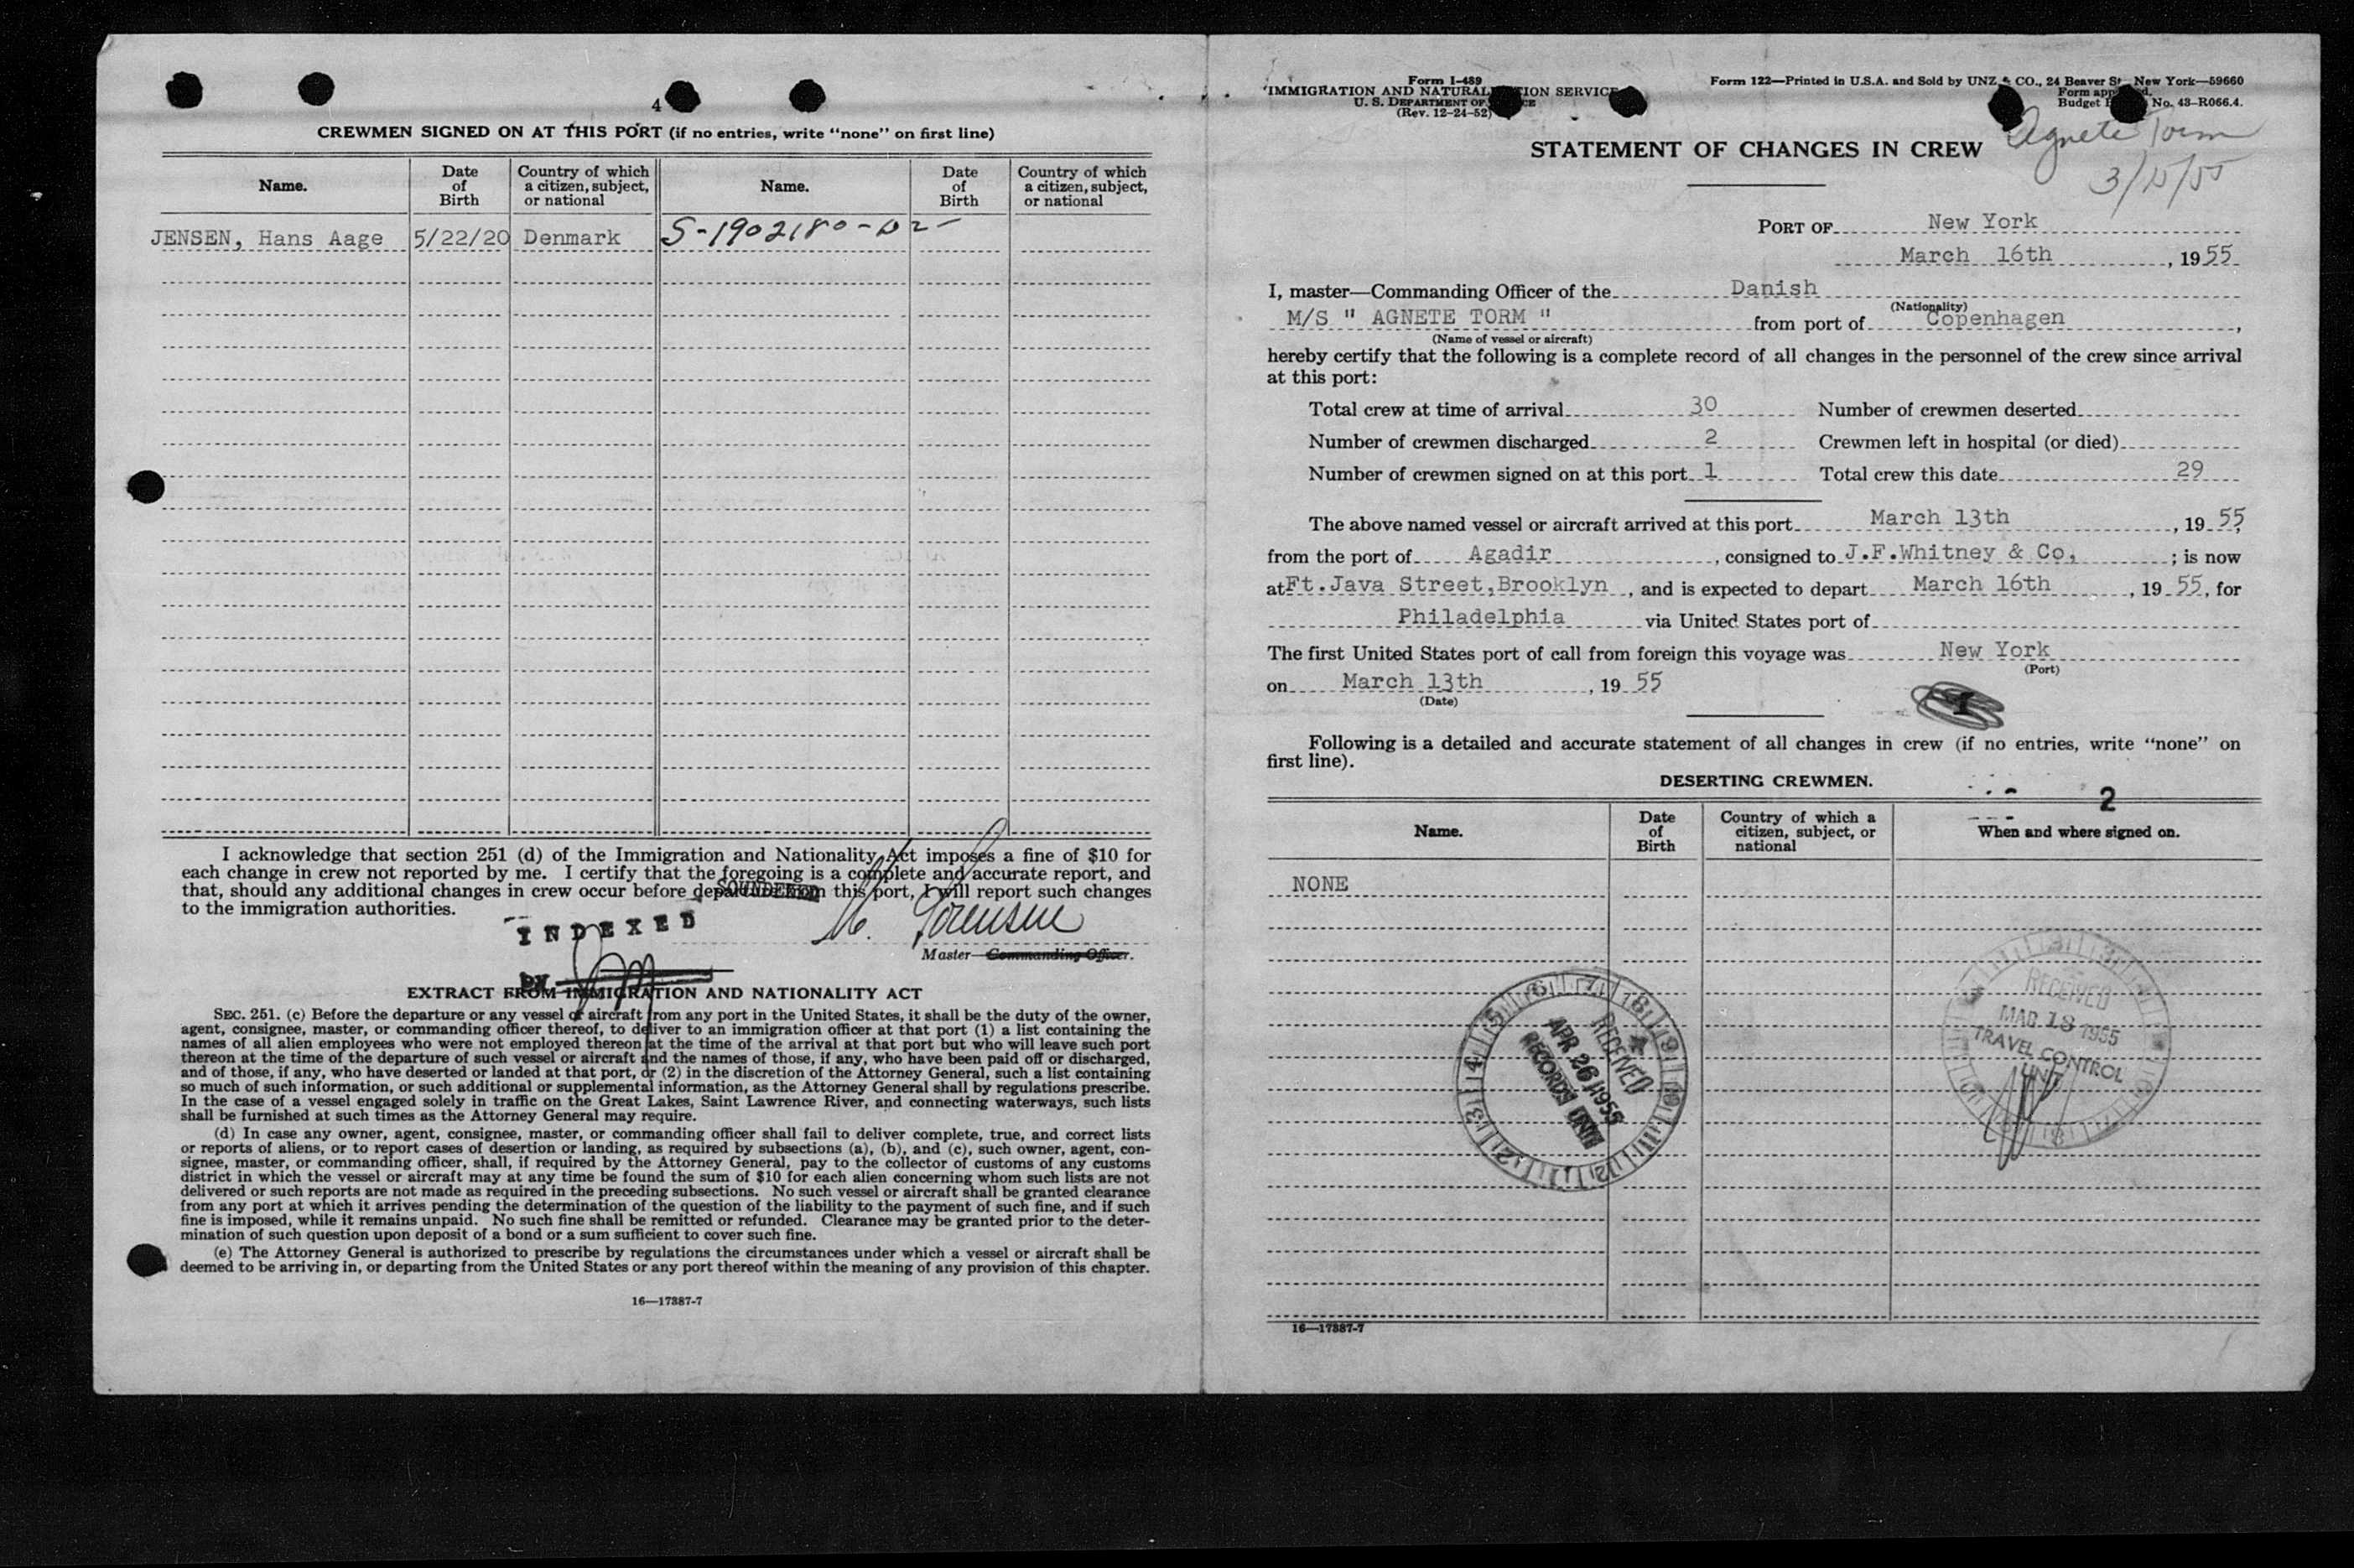 4
CREWMEN SIGNED ON AT THIS PORT (if no entries, write "none" on first line)
Name. Date of Birth Country of which a citizen, subject, or national Name. Date of Birth Country of which a citizen, subject, or national
JENSEN, Hans Aage 5/22/20 Denmark S-1902180-D2-
I acknowledge that section 251 (d) of the Immigration and Nationality Act imposes a fine of $10 for
each change in crew not reported by me. I certify that the foregoing is a complete and accurate report, and
that, should any additional changes in crew occur before departure from this port, I will report such changes
to the immigration authorities.
SOUNDEXED
INDEXED
M. Sörensen
Master—Commanding Officer.
BY
EXTRACT FROM IMMIGRATION AND NATIONALITY ACT
SEC. 251. (c) Before the departure or any vessel or aircraft from any port in the United States, it shall be the duty of the owner,
agent, consignee, master, or commanding officer thereof, to deliver to an immigration officer at that port (1) a list containing the
names of all alien employees who were not employed thereon at the time of the arrival at that port but who will leave such port
thereon at the time of the departure of such vessel or aircraft and the names of those, if any, who have been paid off or discharged,
and of those, if any, who have deserted or landed at that port, or (2) in the discretion of the Attorney General, such a list containing
so much of such information, or such additional or supplemental information, as the Attorney General shall by regulations prescribe.
In the case of a vessel engaged solely in traffic on the Great Lakes, Saint Lawrence River, and connecting waterways, such lists
shall be furnished at such times as the Attorney General may require.
(d) In case any owner, agent, consignee, master, or commanding officer shall fail to deliver complete, true, and correct lists
or reports of aliens, or to report cases of desertion or landing, as required by subsections (a), (b), and (c), such owner, agent, con-
signee, master, or commanding officer, shall, if required by the Attorney General, pay to the collector of customs of any customs
district in which the vessel or aircraft may at any time be found the sum of $10 for each alien concerning whom such lists are not
delivered or such reports are not made as required in the preceding subsections. No such vessel or aircraft shall be granted clearance
from any port at which it arrives pending the determination of the question of the liability to the payment of such fine, and if such
fine is imposed, while it remains unpaid. No such fine shall be remitted or refunded. Clearance may be granted prior to the deter-
mination of such question upon deposit of a bond or a sum sufficient to cover such fine.
(e) The Attorney General is authorized to prescribe by regulations the circumstances under which a vessel or aircraft shall be
deemed to be arriving in, or departing from the United States or any port thereof within the meaning of any provision of this chapter.
16—17387-7
Form I-489
IMMIGRATION AND NATURALIZATION SERVICE
U. S. DEPARTMENT OF JUSTICE
(Rev. 12-24-52)
Form 122—Printed in U.S.A. and Sold by UNZ & CO., 24 Beaver St., New York—59660
Form approved.
Budget Bureau No. 43-R066.4.
Agnete Torm
3/15/55
STATEMENT OF CHANGES IN CREW
PORT OF New York
March 16th, 1955
I, master—Commanding Officer of the Danish
(Nationality)
M/S " AGNETE TORM " from port of Copenhagen,
(Name of vessel or aircraft)
hereby certify that the following is a complete record of all changes in the personnel of the crew since arrival
at this port:
Total crew at time of arrival 30 Number of crewmen deserted
Number of crewmen discharged 2 Crewmen left in hospital (or died)
Number of crewmen signed on at this port 1 Total crew this date 29
The above named vessel or aircraft arrived at this port March 13th, 19 55,
from the port of Agadir, consigned to J.F.Whitney & Co,; is now
at Ft.Java Street,Brooklyn, and is expected to depart March 16th, 19 55, for
Philadelphia via United States port of
The first United States port of call from foreign this voyage was New York
(Port)
on March 13th, 19 55
(Date)
1
Following is a detailed and accurate statement of all changes in crew (if no entries, write "none" on
first line).
DESERTING CREWMEN.
2
Name. Date of Birth Country of which a citizen, subject, or national When and where signed on.
NONE
RECEIVED
MAR 18 1955
TRAVEL CONTROL
UNIT
RECEIVED
APR 26 1955
RECORDS UNIT
16—17387-7